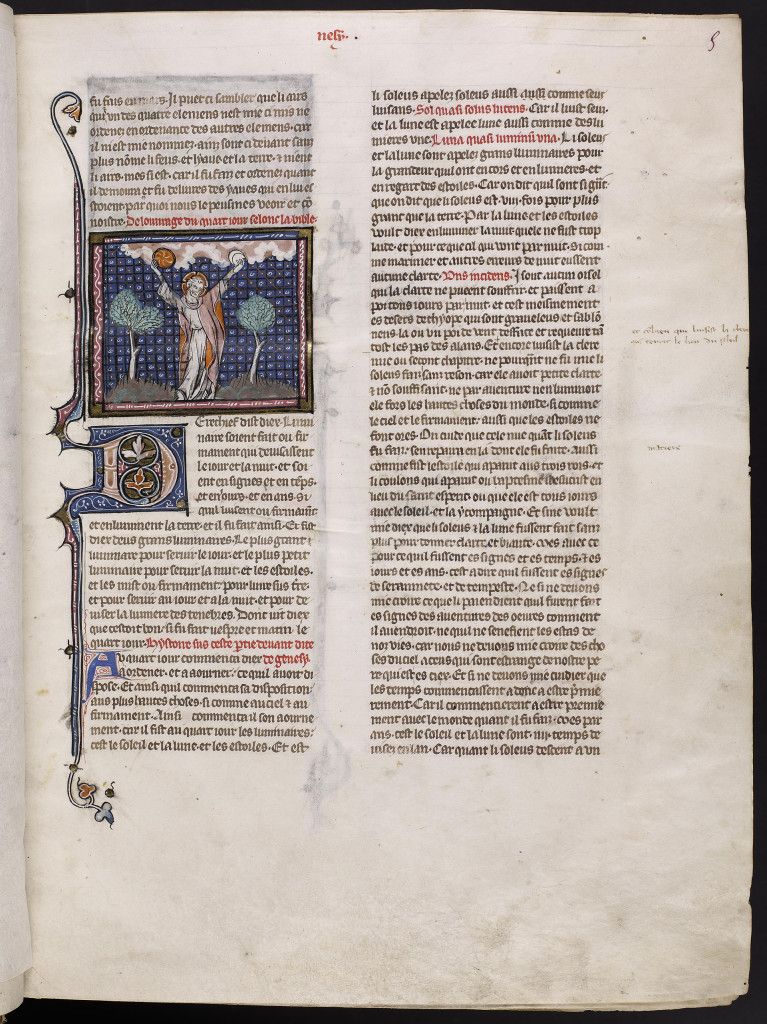 nesis.
5
fu fais en mars. Il puet ci sambler que li airs
qui vn des quatre elemens nest mie ci mis ne
ordenez en ordenance des autres elemens. car
il ni est mie nommez. ains sont ci deuant sans
plus nōme li feus. et lyaue et la terre. et
li airs. mes si est. car il fu fais et ordenez quant
il demoura et fu deliures des yaues qui en lui es
stoient par quoi nous le peusmes veoir et cō
noistre. De lourrage du quart iour selonc la bible.
Erechief dist diex. Lumi
naire soient fait ou fir
mament qui deuisissent
le iour et la nuit. et soi
ent en signes et en tēps.
et en iours. et en ans. si
quil luisent ou firmamēt
et enluminent la terre. et il fu fait ainsi. Et fist
diex deus grans luminaires. Le plus grant
luminaire pour seruir le iour. et le plus petit
luminaire pour seruir la nuit. et les estoiles.
et les mist ou firmament. pour luire sus t're.
et pour seruir au iour et a la nuit. et pour de
uiser la lumiere des tenebres. Dont uit diex
que ces toit bon. si fu fait vespre et matin le
quart iour. Hystoire sus ceste p'tie deuant dite
Au quart iour commenca diex de genes.
a ordener. et a aourner. ce quil auoit di
spose. Et ainsi quil commenca sa disposition
aus plus hautes choses. si comme au ciel et au
firmament. Ainsi commenca il son aourne
ment. car il fist au quart iour les luminaires.
cest le soleil et la lune. et les estoiles. Et est
li soleus apelez soleus aussi aussi comme seur
luisans. Sol quasi solus lucens. Car il luist seur.
et la lune est apelee lune aussi comme des lu
mieres vne. Luna quasi luminū vna. Li soleus
et la lune sont apelez grans luminaires pour
la grandeur quil ont en cors et en lumieres. et
en regart des estoiles. Car on dit quil sont si
que on dit que li soleus est .viij. fois pour plus
grant que la terre. Par la lune et les estoiles
voult diex enluminer la nuit quele ne fust trop
laide. et pour ce que cil qui vont par nuit. si com
me marinier et autres erreurs de nuit eussent
aucune clarte. Vns incidens. Il sont aucun oisel
qui la clarte ne pueent souffrir. et paissent a
poi tous iours par nuit. et cest meismement
es desers dethyope qui sont graueleus et sablō
neus. la ou vn poi de vent
tost les pas des alans. Et encore luisist la clere
nue ou secont chapitre. ne pourqāt ne fu mie li
soleus fais sans reson. car ele auoit petite clarte
nō souffisant. ne par auenture nenluminoit
ele fors les hautes choses du monde. si comme
le ciel et le firmament. aussi que les estoiles ne
font ores. On cuide que cele nue quāt li soleus
fu fais. sen repaira en la dont ele fu faite. aussi
comme fist lestoile qui aparut aus trois rois. et
li coulons qui aparut ou baptesme ihesucrist en
lieu du saint esperit. ou que ele est tous iours
auec le soleil. et la ycompaigne. Et sine voult
mie diex que li soleus et la lune fussent fait sans
plus pour donner clarte. et biaute. coes auec ce
pour ce quil fussent es signes et es temps. et es
iours et es ans. cest a dire quil fussent es signes
de serainnete. et de tempeste. Ne si ne deuons
mie croire ce que li paien dient quil furent fait
es signes des auentures des oeures comment
il auendroit. ne quil ne senefient les estas de
nor vies. car nous ne deuons mie croire des cho
ses du ciel. a ceus qui sont estrange de nostre pe
re qui est es ciex. Et si ne deuons mie cuidier que
les temps commencassent adonc a estre p'mie
rement. Car il commencierent a estre premie
ment auec le monde quant il fu fais. coes par
ans. cest le soleil et la lune sont .iiij. temps de
uisez en lan. Car quant li soleus descent a vn